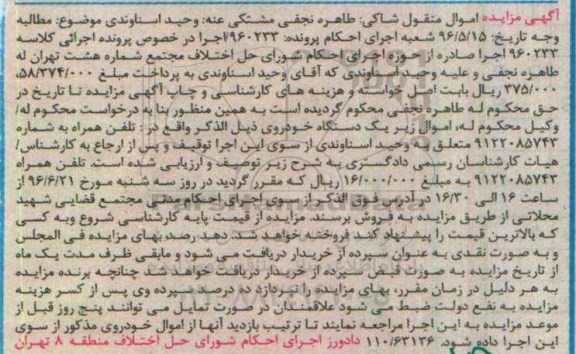 آگهی مزایده اموال منقول شاکی: طاهره نجفی مشتکی عنه: وحید اسناوندی موضوع: مطالبه
وجه تاریخ: ۹۶/۵/۱۵ شعبه اجرای احکام پرونده: ۹۶۰۲۳۳/اجرا در خصوص پرونده اجرائی کلاسه
۹۶۰۲۳۳ اجرا صادره از حوزه اجرای احکام شورای حل اختلاف مجتمع شماره هشت تهران له
طاهره نجفی و علیه وحید اسناوندی که آقای وحید اسناوندی به پرداخت مبلغ ۵۸/۳۷۴/۰۰۰،
۳۷۵/۰۰۰ ریال بابت اصل خواسته و هزینه های کارشناسی و چاپ آگهی مزایده تا تاریخ در
حق محکوم له طاهره نجفی محکوم گردیده است به همین منظور بنا به درخواست محکوم له/
وکیل محکوم له، اموال زیر یک دستگاه خودروی ذیل الذکر واقع در: تلفن همراه به شماره
۹۱۲۲۰۸۵۷۴۳ متعلق به وحید اسناوندی از سوی این اجرا توقیف و پس از ارجاع به کارشناس/
هیات کارشناسان رسمی دادگستری به شرح زیر توصیف و ارزیابی شده است. تلفن همراه
۹۱۲۲۰۸۵۷۴۳ به مبلغ ۱۶/۰۰۰/۰۰۰ ریال که مقرر گردید در روز سه شنبه مورخ ۹۶/۶/۲۱ از
ساعت ۱۶ الی ۱۶/۳۰ در آدرس فوق الذکر از سوی اجرای احکام مدنی مجتمع قضایی شهید
محلاتی از طریق مزایده به فروش برسند. مزایده از قیمت پایه کارشناسی شروع و به کسی
که بالاترین قیمت را پیشنهاد کند فروخته خواهد شد. دهد رصد بهای مزایده فی المجلس
و به صورت نقدی به عنوان سپرده از خریدار دریافت می شود و مابقی ظرف مدت یک ماه
از تاریخ مزایده به صورت قبض سپرده از خریدار دریافت خواهد شد چنانچه برنده مزایده
به هر دلیل در زمان مقرر، بهای مزایده را نپردازد ده درصد سپرده وی پس از کسر هزینه
مزایده به نفع دولت ضبط می شود علاقمندان در صورت تمایل می توانند پنج روز قبل از
موعد مزایده به این اجرا مراجعه نمایند تا ترتیب بازدید آنها از اموال خودروی مذکور از سوی
این اجرا داده شود. ۱۱۰/۶۳۱۳۶ دادورز اجرای احکام شورای حل اختلاف منطقه ۸ تهران